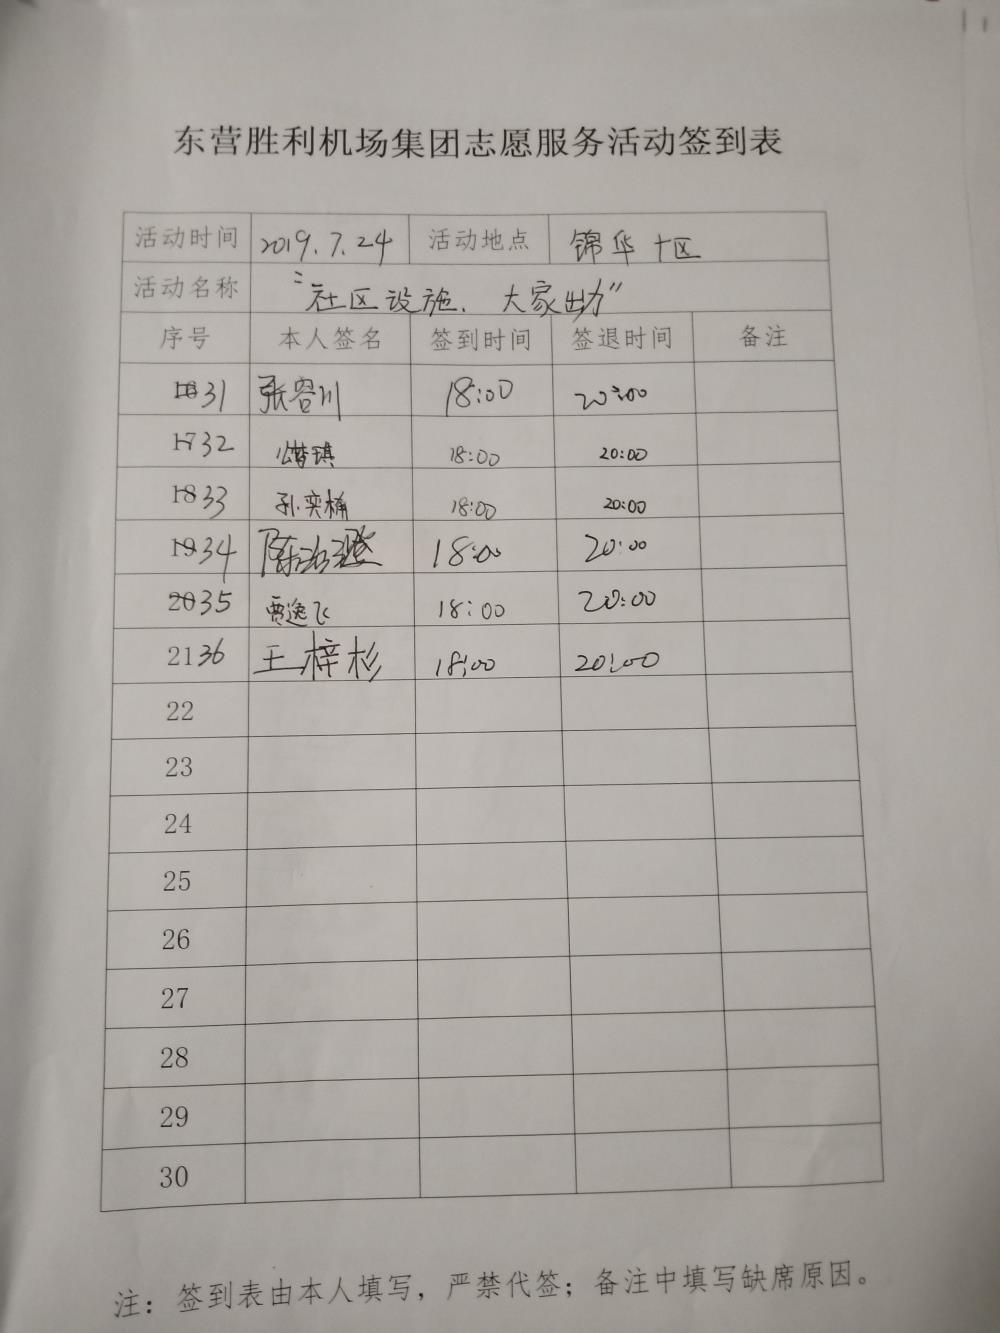 东营胜利机场集团志愿服务活动签到表
活动时间 2019.7.24 活动地点 锦华十区
活动名称 "社区设施、大家出力"
序号 本人签名 签到时间 签退时间 备注
31 张容川 18:00 20:00
32 公梦琪 18:00 20:00
33 孙奕楠 18:00 20:00
34 陈 18:00 20:00
35 贾逸飞 18:00 20:00
36 王梓杉 18:00 20:00
22
23
24
25
26
27
28
29
30
注：签到表由本人填写，严禁代签；备注中填写缺席原因。